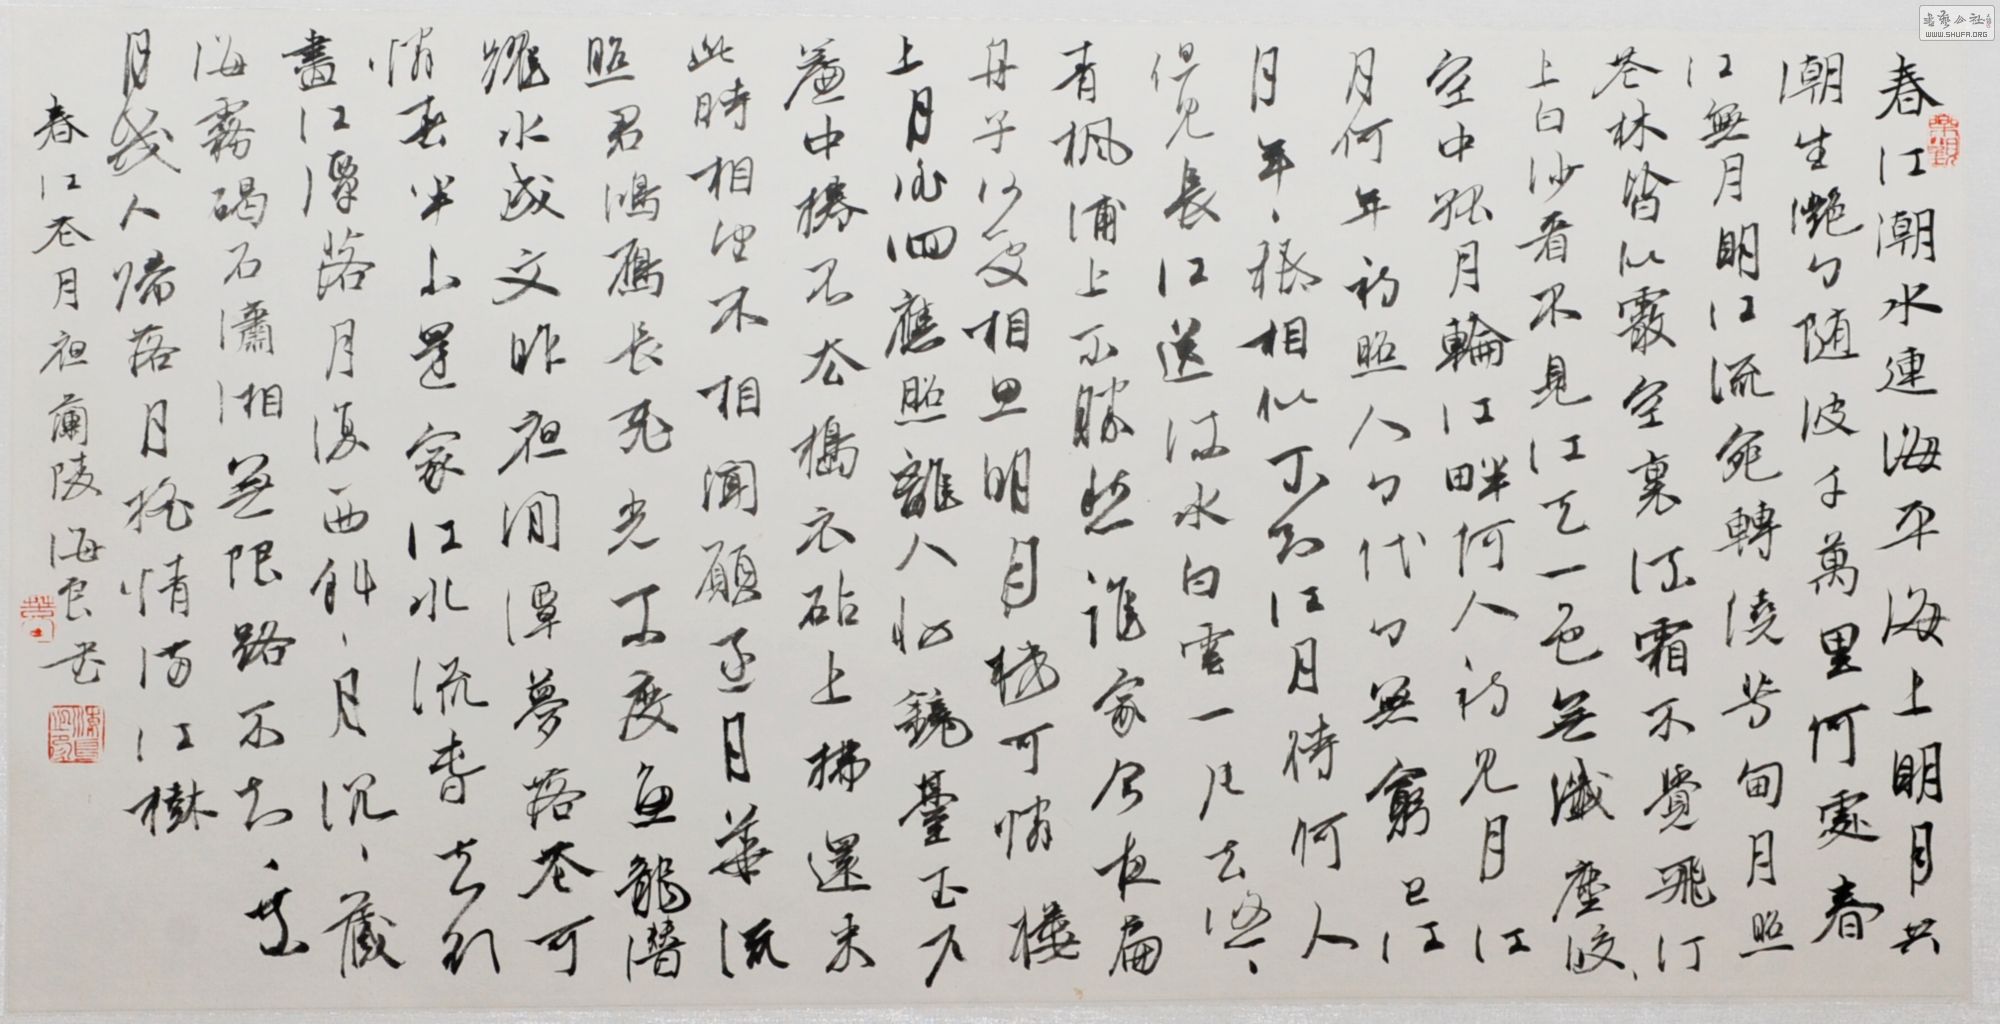 春江潮水連海平海上明月共
潮生灔〻随波千萬里何處春
江無月明江流宛轉遶芳甸月照
花林皆似霰空裏流霜不覺飛汀
上白沙看不見江天一色無纖塵皎〻
空中孤月輪江畔何人初見月江
月何年初照人〻代〻無窮已江
月年〻祇相似不知江月待何人
但見長江送流水白雲一片去悠〻
青楓浦上不勝愁誰家今夜扁
舟子何處相思明月樓可憐樓
上月徘徊應照離人妝鏡臺玉戶
簾中捲不去擣衣砧上拂還来
此時相望不相聞願逐月華流
照君鴻雁長飛光不度魚龍潛
躍水成文昨夜閒潭夢落花可
憐春半不還家江水流春去欲
盡江潭落月復西斜〻月沉〻藏
海霧碣石瀟湘無限路不知〻乘
月幾人歸落月搖情滿江樹
春江花月夜蘭陵海良書
書藝公社
WWW.SHUFA.ORG